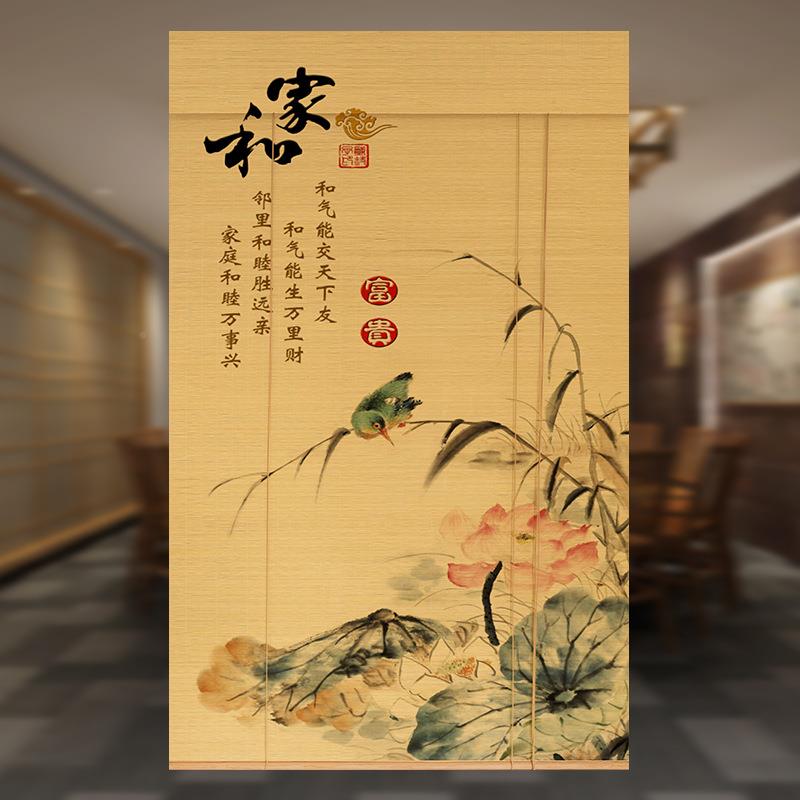 家和
和气能交天下友
和气能生万里财
邻里和睦胜远亲
家庭和睦万事兴
富貴